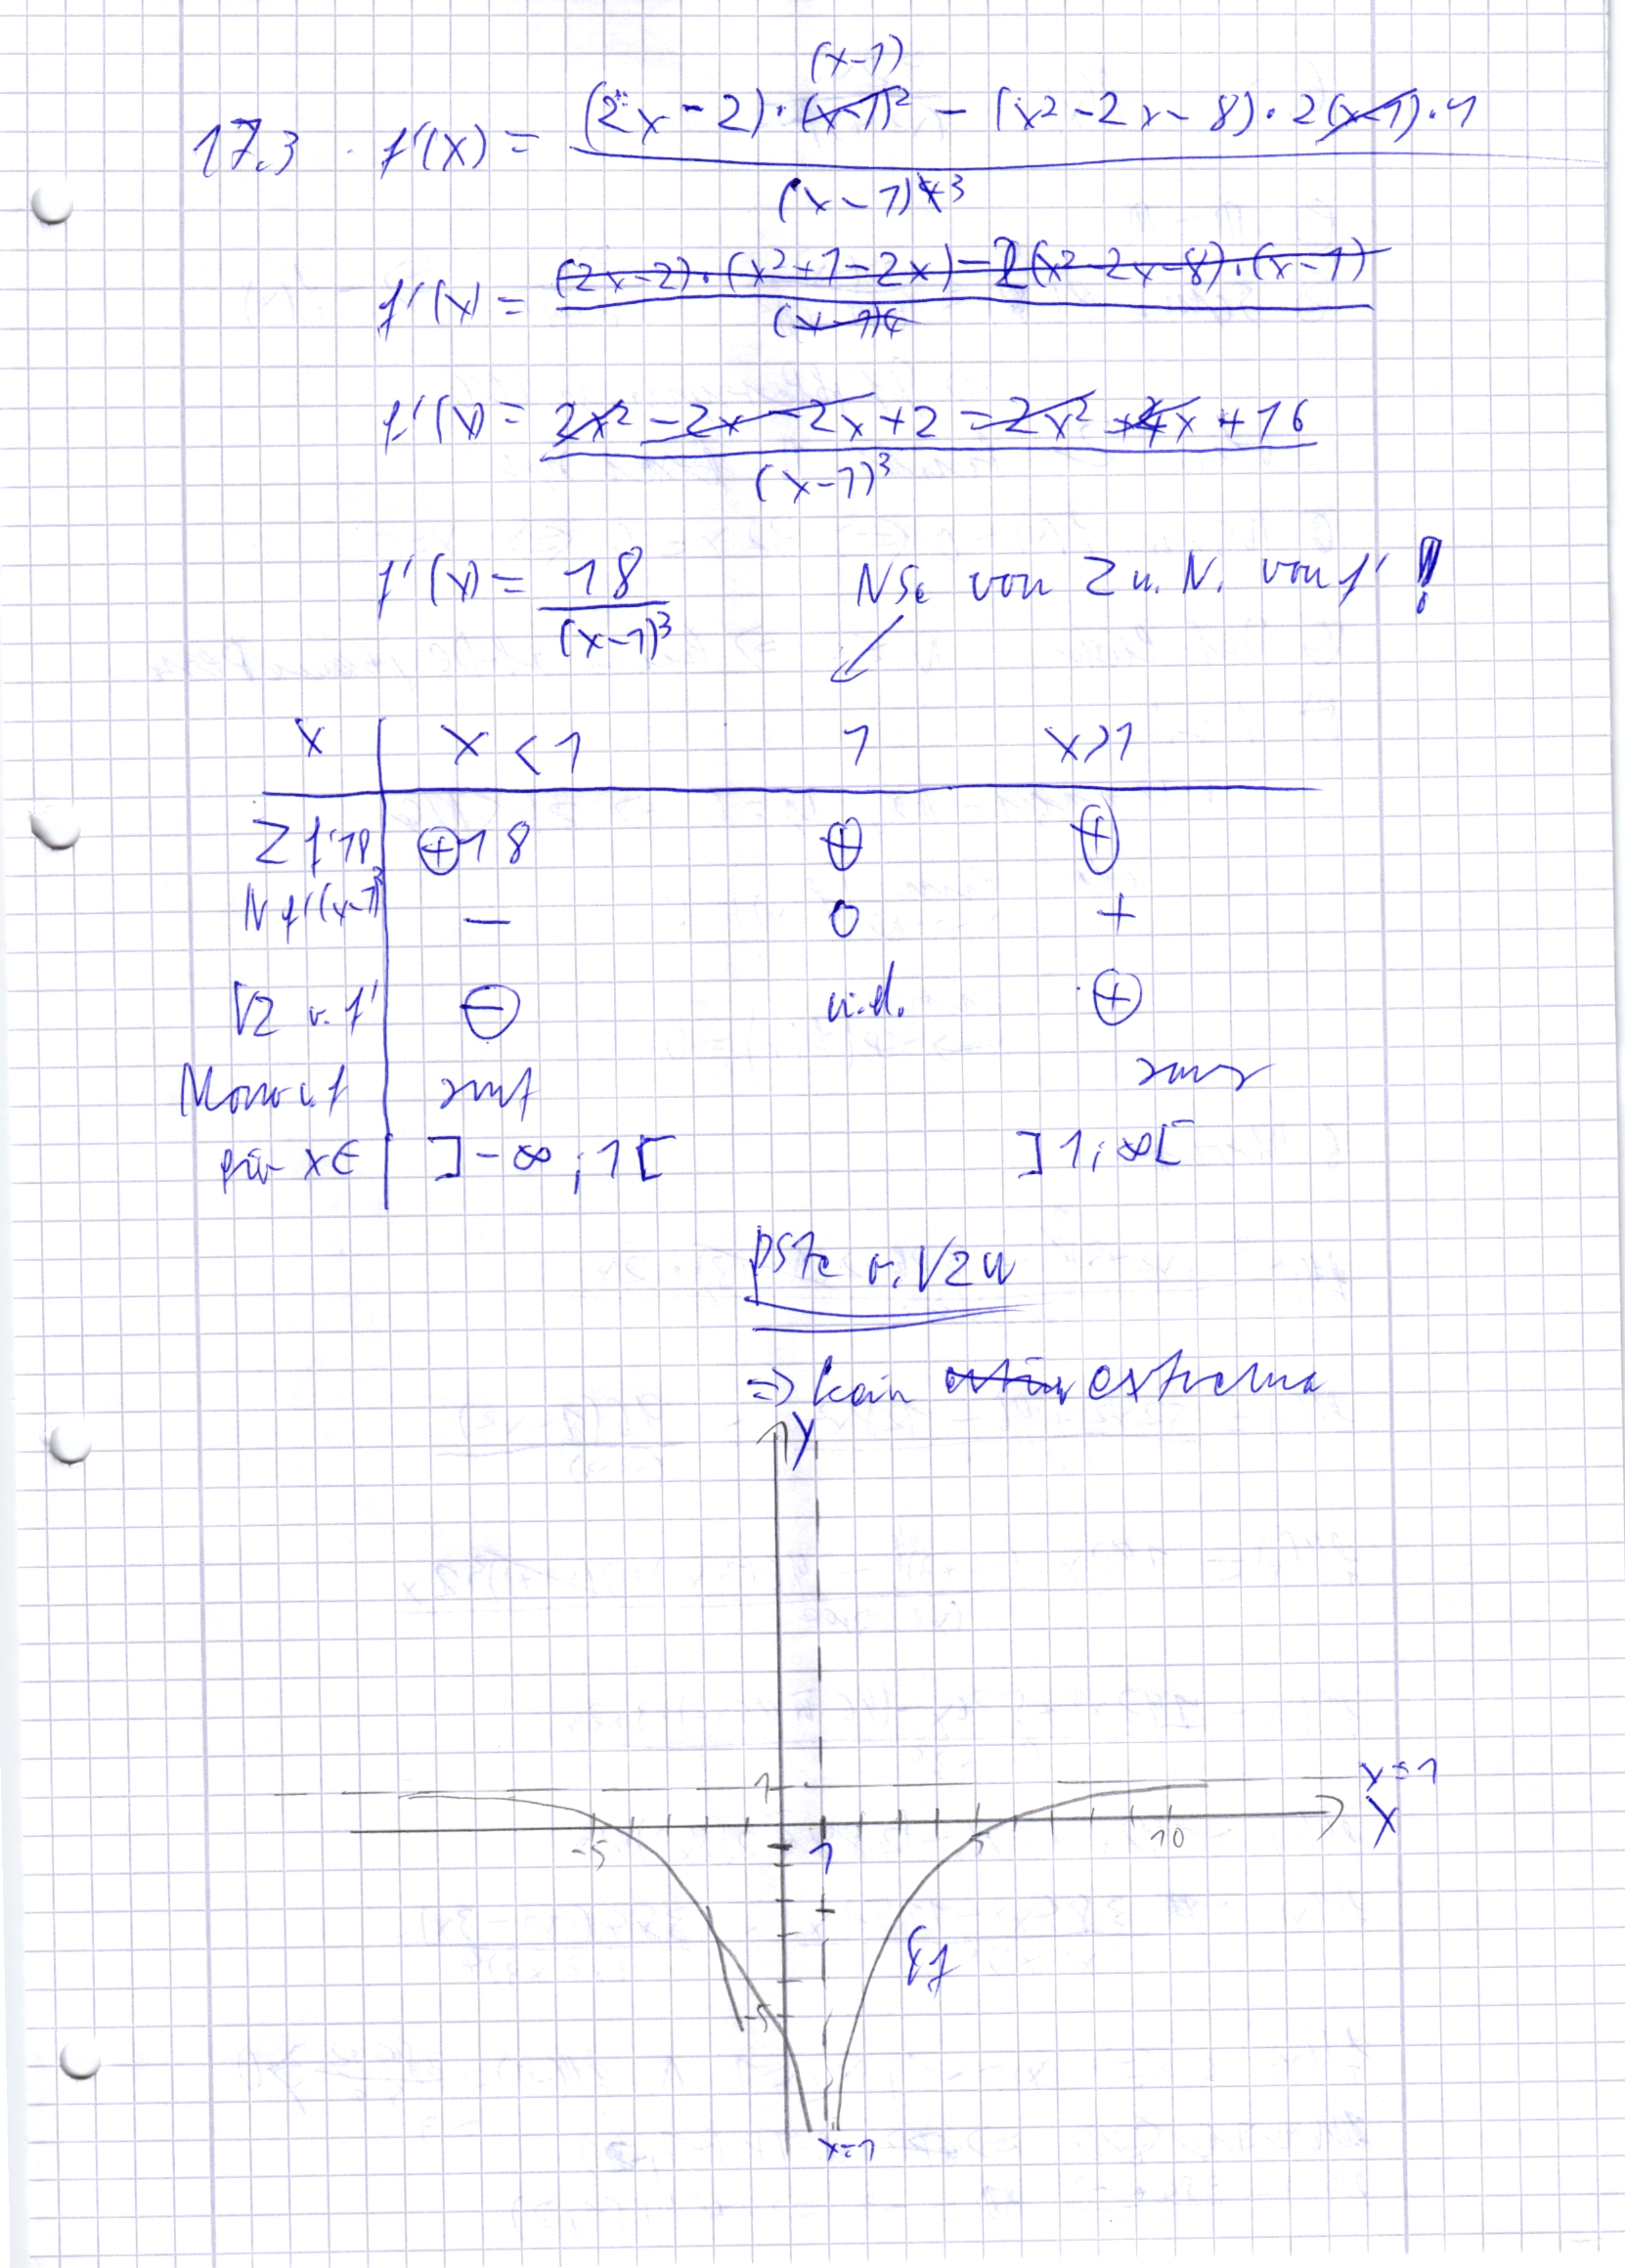 (x-1)
17.3 f'(x) = (2x-2)·(x-1)² - (x²-2x-8)·2(x-1)·1
(x-1)⁴ 3
f'(x) = (2x-2)·(x²+1-2x)-2(x²-2x-8)·(x-1)
(x-1)4
f'(x) = 2x²-2x-2x+2-2x²+4x+16
(x-1)³
f'(x) = 18 NSt von Z u. N. von f' !
(x-1)³
x x<1 1 x>1
Z f' 18 ⊕18 ⊕ ⊕
N f' (x-1)³ - 0 +
VZ v. f' ⊖ n.d. ⊕
Mono v. f smf sms
für x∈ ]-∞;1[ ]1;∞[
PSTe v. VZW
⇒ kein extrema
y
1 y=1
x
-5 1 5 10
Gf
-5
x=1